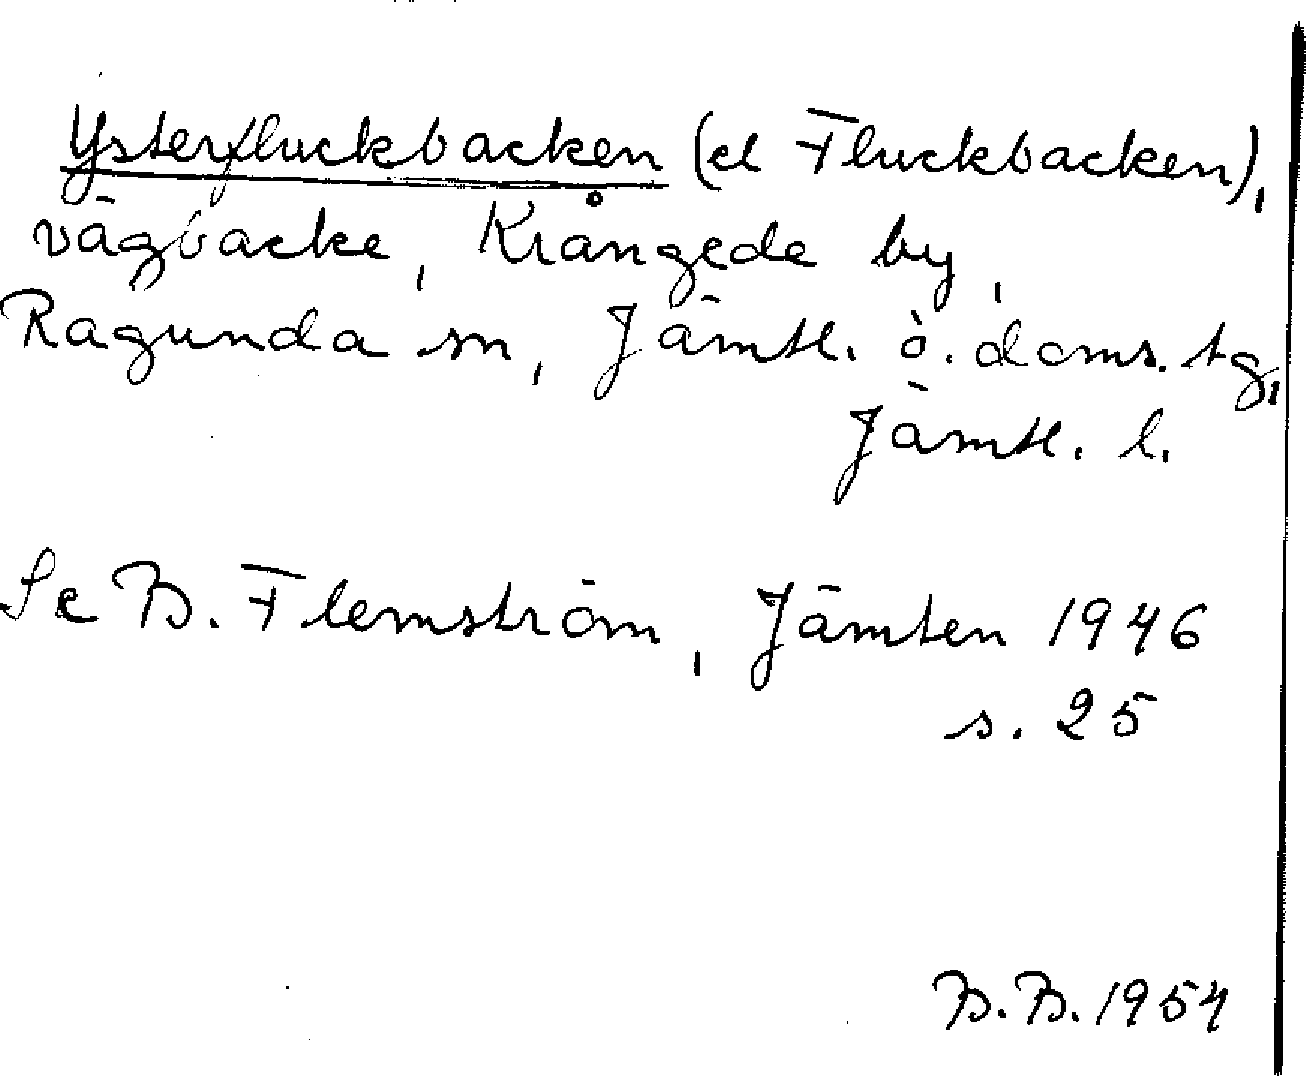 Ysterfluckbacken (el Fluckbacken),
vägbacke, Krångede by,
Ragunda sn, Jämtl. ö. doms. tg,
Jämtl. l.
Se B. Flemström, Jämten 1946
s. 25
B.B. 1954